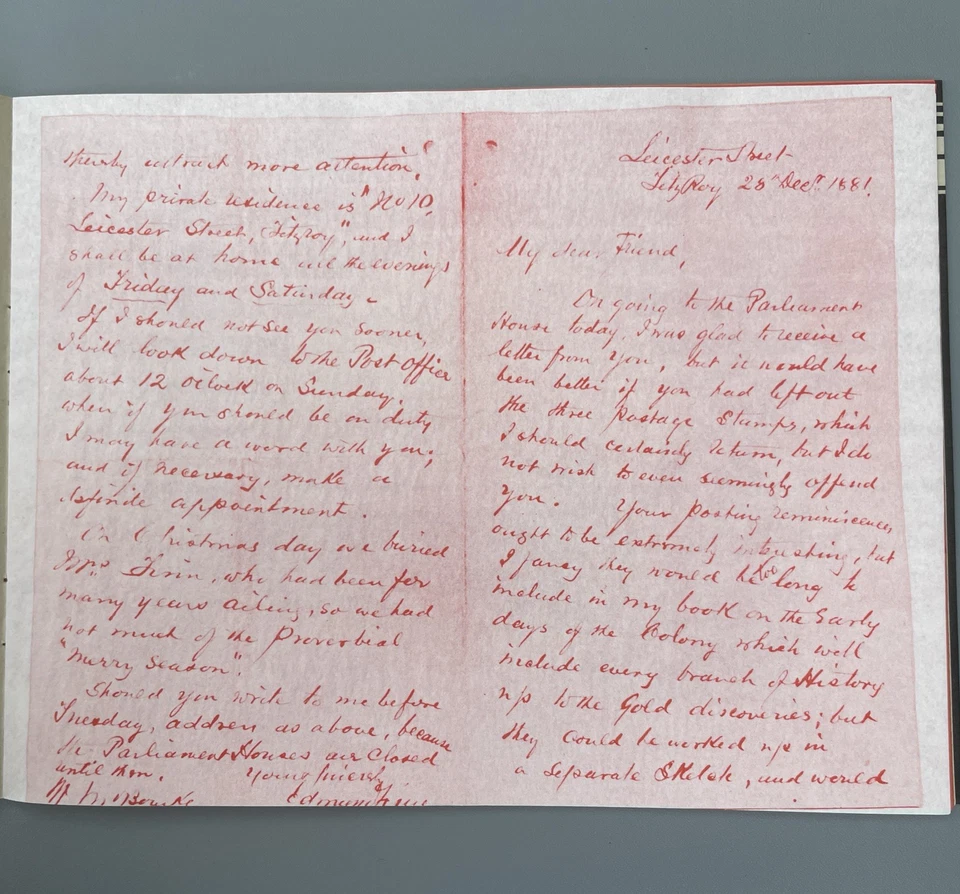 Leicester Street
FitzRoy 28th Decr. 1881.
My dear Friend,
On going to the Parliament
House today, I was glad to receive a
letter from you, but it would have
been better if you had left out
the three postage Stamps, which
I should certainly return, but I do
not wish to even seemingly offend
you. Your posting reminiscences
ought to be extremely interesting, but
I fancy they would be too long to
include in my book on the Early
days of the Colony which will
include every branch of History
up to the Gold discoveries; but
they could be worked up in
a separate Sketch, and would
thereby attract more attention.
My private residence is "No 10,
Leicester Street, Fitzroy", and I
shall be at home all the evenings
of Friday and Saturday.
If I should not see you sooner,
I will look down to the Post Office
about 12 o'clock on Sunday,
when if you should be on duty
I may have a word with you,
and if necessary, make a
definite appointment.
On Christmas day we buried
Mrs. Finn, who had been for
many years ailing, so we had
not much of the proverbial
"Merry Season".
Should you write to me before
Tuesday, address as above, because
the Parliament Houses are closed
until then. Yours sincerely
Edmund Finn